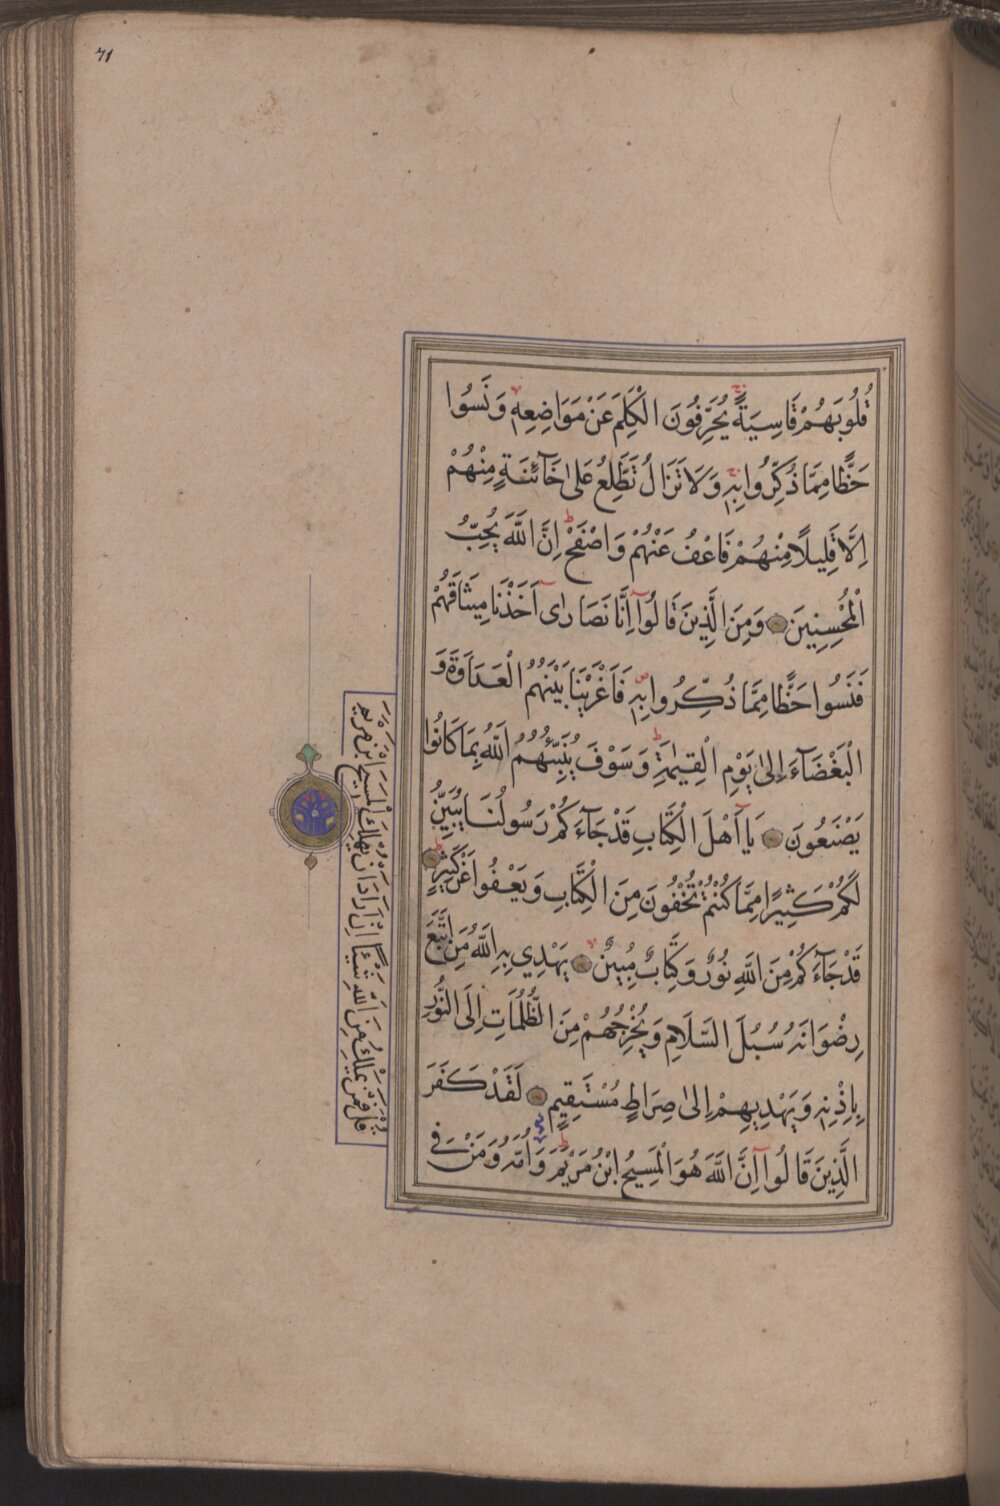 71
قُلُوبَهُمْ قَاسِيَةً يُحَرِّفُونَ الْكَلِمَ عَنْ مَوَاضِعِهِ وَنَسُوا
حَظًّا مِمَّا ذُكِّرُوا بِهِ وَلَا تَزَالُ تَطَّلِعُ عَلَى خَآئِنَةٍ مِنْهُمْ
اِلَّا قَلِيلًا مِنْهُمْ فَاعْفُ عَنْهُمْ وَاصْفَحْ اِنَّ اللَّهَ يُحِبُّ
الْمُحْسِنِينَ وَمِنَ الَّذِينَ قَالُوآ اِنَّا نَصَارٰى اَخَذْنَا مِيثَاقَهُمْ
فَنَسُوا حَظًّا مِمَّا ذُكِّرُوا بِهِ فَاَغْرَيْنَا بَيْنَهُمُ الْعَدَاوَةَ وَ
الْبَغْضَآءَ اِلٰى يَوْمِ الْقِيٰمَةِ وَسَوْفَ يُنَبِّئُهُمُ اللَّهُ بِمَا كَانُوا
يَصْنَعُونَ يَآ اَهْلَ الْكِتَابِ قَدْ جَآءَكُمْ رَسُولُنَا يُبَيِّنُ
لَكُمْ كَثِيرًا مِمَّا كُنْتُمْ تُخْفُونَ مِنَ الْكِتَابِ وَيَعْفُوا عَنْ كَثِيرٍ
قَدْ جَآءَكُمْ مِنَ اللَّهِ نُورٌ وَكِتَابٌ مُبِينٌ يَهْدِي بِهِ اللَّهُ مَنِ اتَّبَعَ
رِضْوَانَهُ سُبُلَ السَّلَامِ وَيُخْرِجُهُمْ مِنَ الظُّلُمَاتِ اِلَى النُّورِ
بِاِذْنِهِ وَيَهْدِيهِمْ اِلٰى صِرَاطٍ مُسْتَقِيمٍ لَقَدْ كَفَرَ
الَّذِينَ قَالُوآ اِنَّ اللَّهَ هُوَ الْمَسِيحُ ابْنُ مَرْيَمَ وَاُمَّهُ وَمَنْ فِي
قُلْ فَمَنْ يَمْلِكُ مِنَ اللَّهِ شَيْئًا اِنْ اَرَادَ اَنْ يُهْلِكَ الْمَسِيحَ ابْنَ مَرْيَمَ